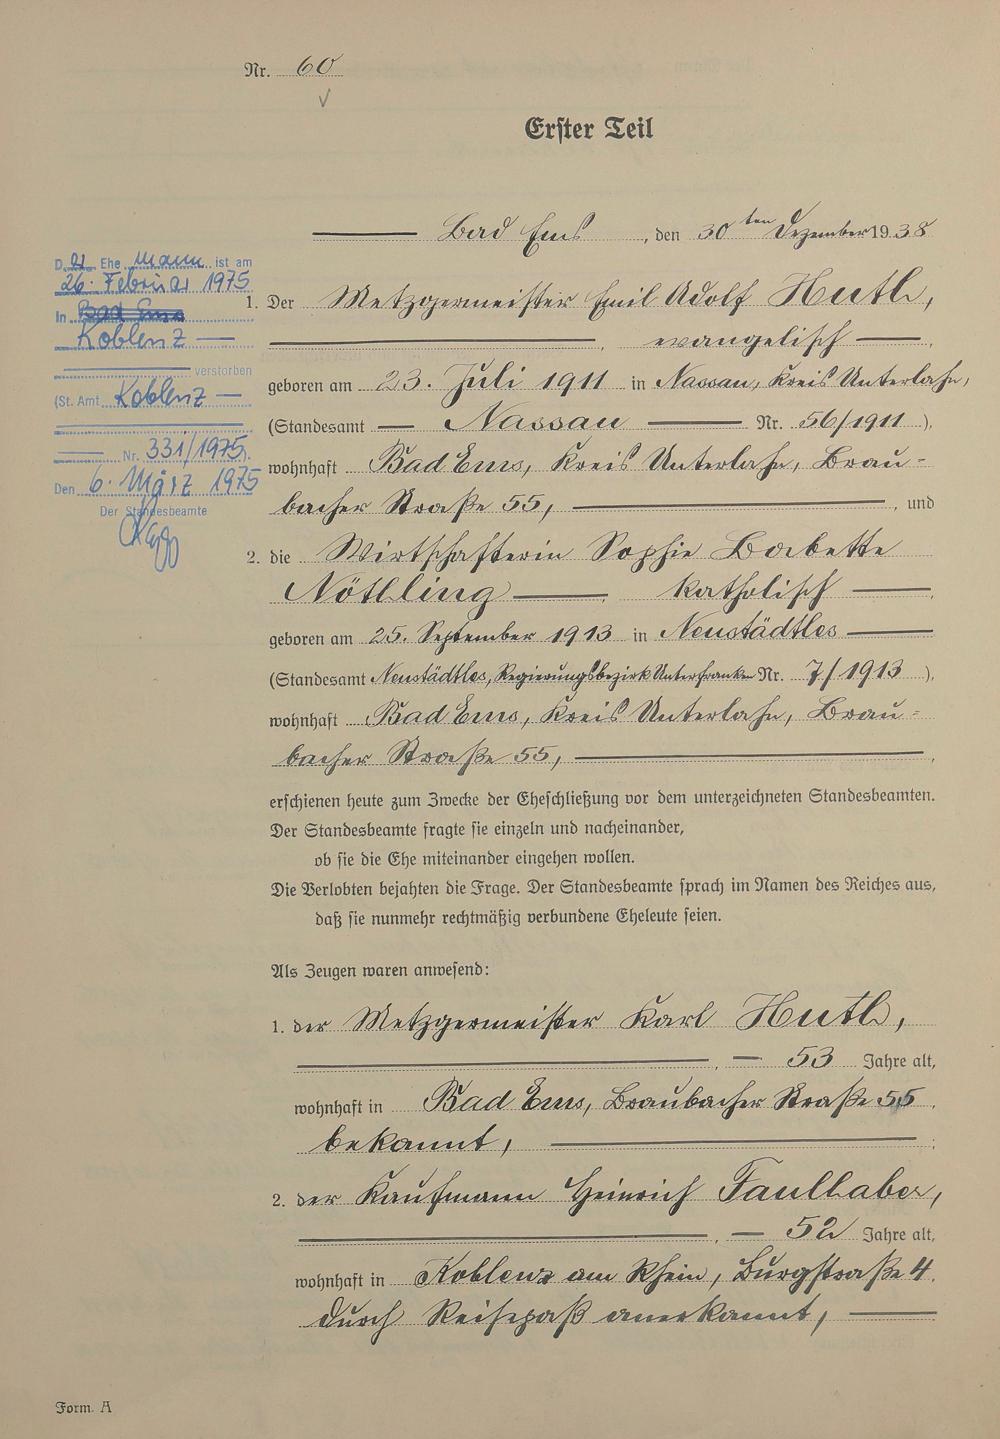 Nr. 60
Erster Teil
Bad Ems, den 30ten Dezember 1938
Der Ehemann ist am
26. Februar 1975
In Bad Ems
Koblenz
verstorben
(St. Amt Koblenz
Nr. 331/1975).
Den 6. März 1975
Der Standesbeamte
1. Der Metzgermeister Emil Adolf Huth,
evangelisch,
geboren am 23. Juli 1911 in Nassau, Kreis Unterlahn,
(Standesamt Nassau Nr. 56/1911),
wohnhaft Bad Ems, Kreis Unterlahn, Brau-
bacher Straße 55, und
2. die Wirtschafterin Sophie Babette
Nöthling, katholisch,
geboren am 25. September 1913 in Neustädtles
(Standesamt Neustädtles, Regierungsbezirk Unterfranken Nr. 7/1913),
wohnhaft Bad Ems, Kreis Unterlahn, Brau-
bacher Straße 55,
erschienen heute zum Zwecke der Eheschließung vor dem unterzeichneten Standesbeamten.
Der Standesbeamte fragte sie einzeln und nacheinander,
ob sie die Ehe miteinander eingehen wollen.
Die Verlobten bejahten die Frage. Der Standesbeamte sprach im Namen des Reiches aus,
daß sie nunmehr rechtmäßig verbundene Eheleute seien.
Als Zeugen waren anwesend:
1. der Metzgermeister Karl Huth,
53 Jahre alt,
wohnhaft in Bad Ems, Braubacher Straße 55,
bekannt,
2. der Kaufmann Heinrich Faulhaber,
52 Jahre alt,
wohnhaft in Koblenz am Rhein, Burgstraße 4.
durch Reisepaß anerkannt,
Form. A